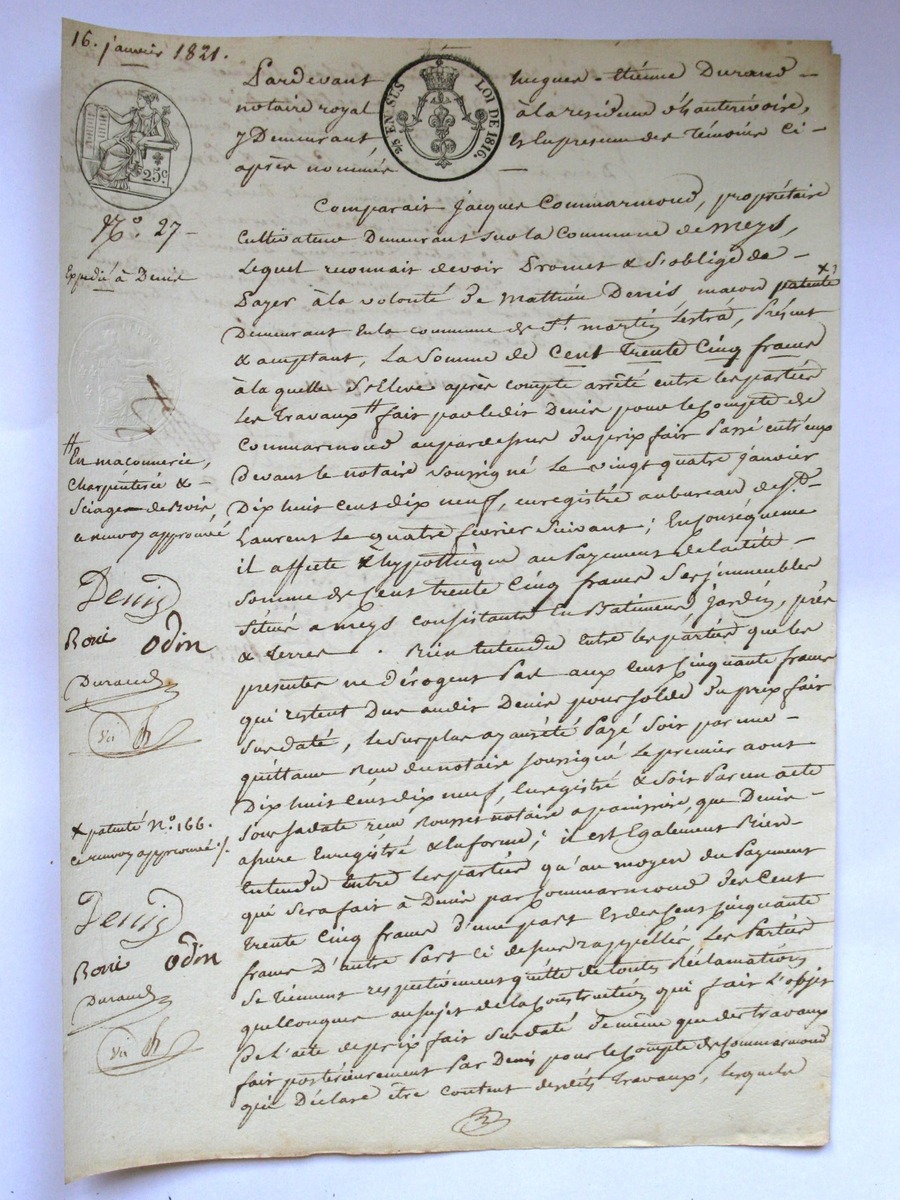 16. janvier 1821.
25 EN SUS
LOI DE 1816.
25c
Pardevant hugues-Etienne Durand
notaire royal à la residence d'hauterivoire,
y Demeurant, et en presence des Témoins Ci-
après nommés
N°. 27
Expedié à Denis
Comparait Jacques Commarmond, propriétaire
Cultivateur Demeurant sur la Commune de meys,
Lequel reconnait devoir Promet & s'oblige de
Payer à la volonté de Mathieu Denis macon patenté x
Demeurant en la commune de St. martin Lestrá, Présent
& acceptant, La Somme de Cent trente Cinq francs
à la quelle S'Eleve après compte arrêté entre les parties
Les Travaux # fait par le dit Denis pour le Compte de
Commarmond au par dessus du prix fait Passé entr'eux
Devant le notaire Soussigné Le vingt quatre janvier
Dix huit cent dix neuf, enregistré au bureau de St.
Laurent le quatre février Suivant; En Conséquence
il affecte & hypothèque au Payement de la dite
Somme de Cent trente Cinq francs Ses immeubles
Situés a Meys Consistants En Batiments, Jardin, près
& terres. Bien Entendu Entre les parties que les
presentes ne dérogent Pas aux Cent Cinquante francs
qui restent Dus audit Denis pour Solde du prix fait
Susdaté, le Surplus ayant été Payé Soit par une
quittance Reçue du notaire Soussigné Le premier aout
Dix huit Cent dix neuf, Enregistré & Soit Par un acte
Sous Sa date reçu Rousset notaire a panissière, que Denis
assure Enregistré & En forme; il est Egalement Bien
Entendu Entre les parties qu'au moyen du Payement
qui Sera fait à Denis par Commarmond des Cent
trente Cinq francs d'une part Et des Cent Cinquante
francs D'autre Part Ci dessus rappellés, Les Parties
Se Tiennent respectivement quitte de toutes Réclamations
quelconques au Sujet de la Construction qui fait L'objet
De L'acte de prix fait Susdaté De même que des travaux
fait postérieurement Par Denis pour le Compte de Commarmond
qui Déclare être Content desdits Travaux, lesquels
# En maconnerie,
Charpenterie &
Sciages de Bois,
ce renvoy approuvé
Denis
Odin
Durand
x patenté N°. 166.
ce renvoy approuvé ./.
Denis
Odin
Durand